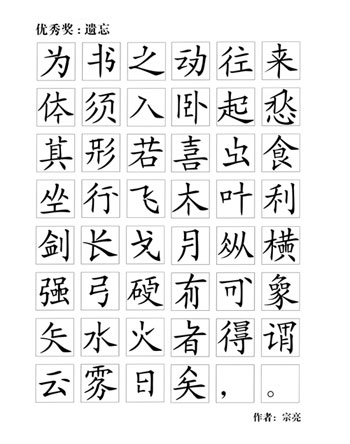 优秀奖：遗忘
为书之动往来
体须入卧起愁
其形若喜虫食
坐行飞木叶利
剑长戈月纵横
强弓硬有可象
矢水火者得谓
云雾日矣，。
作者：宗亮